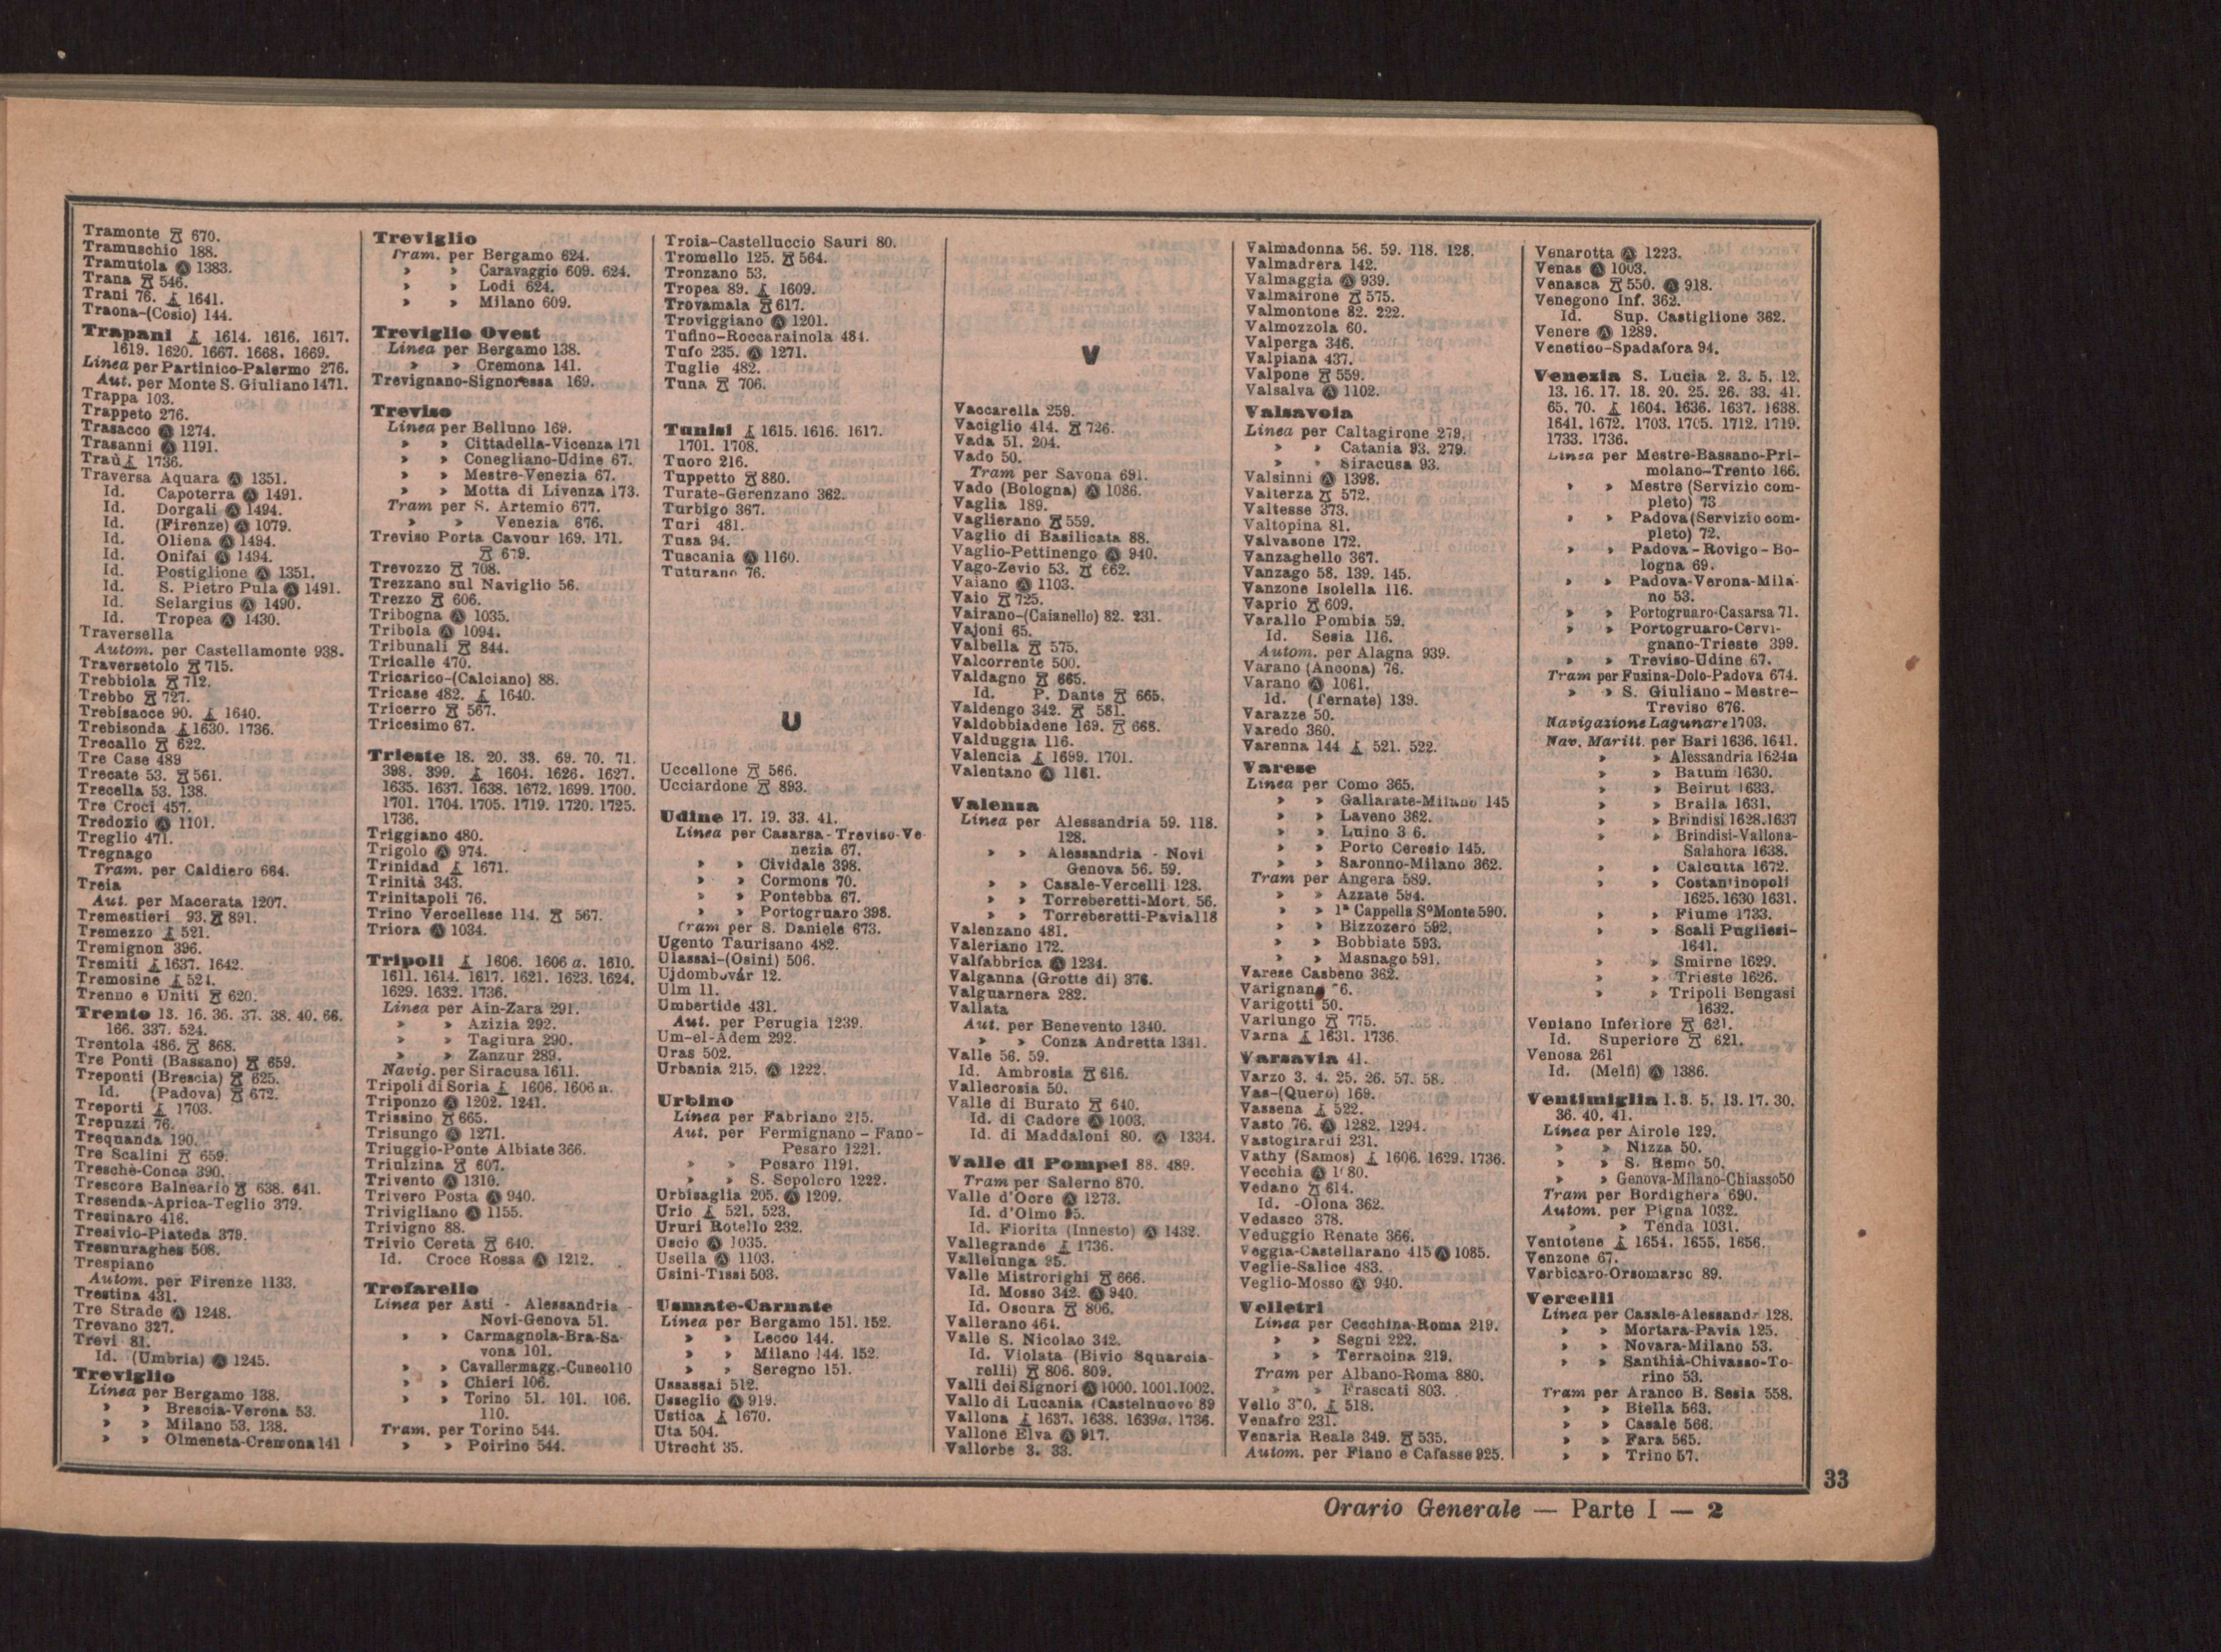 Tramonte 670.
Tramuschio 188.
Tramutola Ⓐ 1383.
Trana 546.
Trani 76. 1641.
Traona-(Cosio) 144.
Trapani 1614. 1616. 1617.
1619. 1620. 1667. 1668. 1669.
Linea per Partinico-Palermo 276.
Aut. per Monte S. Giuliano 1471.
Trappa 103.
Trappeto 276.
Trasacco Ⓐ 1274.
Trasanni Ⓐ 1191.
Traù 1736.
Traversa Aquara Ⓐ 1351.
Id. Capoterra Ⓐ 1491.
Id. Dorgali Ⓐ 1494.
Id. (Firenze) Ⓐ 1079.
Id. Oliena Ⓐ 1494.
Id. Onifai Ⓐ 1494.
Id. Postiglione Ⓐ 1351.
Id. S. Pietro Pula Ⓐ 1491.
Id. Selargius Ⓐ 1490.
Id. Tropea Ⓐ 1430.
Traversella
Autom. per Castellamonte 938.
Traversetolo 715.
Trebbiola 712.
Trebbo 727.
Trebisacce 90. 1640.
Trebisonda 1630. 1736.
Trecallo 622.
Tre Case 489
Trecate 53. 561.
Trecella 53. 138.
Tre Croci 457.
Tredozio Ⓐ 1101.
Treglio 471.
Tregnago
Tram. per Caldiero 664.
Treia
Aut. per Macerata 1207.
Tremestieri 93. 891.
Tremezzo 521.
Tremignon 396.
Tremiti 1637. 1642.
Tremosine 524.
Trenno e Uniti 620.
Trento 13. 16. 36. 37. 38. 40. 66.
166. 337. 524.
Trentola 486. 868.
Tre Ponti (Bassano) 659.
Treponti (Brescia) 625.
Id. (Padova) 672.
Treporti 1703.
Trepuzzi 76.
Trequanda 190.
Tre Scalini 659.
Treschè-Conca 390.
Trescore Balneario 638. 641.
Tresenda-Aprica-Teglio 379.
Tresinaro 416.
Tresivio-Piateda 379.
Tresnuraghes 508.
Trespiano
Autom. per Firenze 1133.
Trestina 431.
Tre Strade Ⓐ 1248.
Trevano 327.
Trevi 81.
Id. (Umbria) Ⓐ 1245.
Treviglio
Linea per Bergamo 138.
» » Brescia-Verona 53.
» » Milano 53. 138.
» » Olmeneta-Cremona 141
Treviglio
Tram. per Bergamo 624.
» » Caravaggio 609. 624.
» » Lodi 624.
» » Milano 609.
Treviglio Ovest
Linea per Bergamo 138.
» » Cremona 141.
Trevignano-Signoressa 169.
Treviso
Linea per Belluno 169.
» » Cittadella-Vicenza 171
» » Conegliano-Udine 67.
» » Mestre-Venezia 67.
» » Motta di Livenza 173.
Tram per S. Artemio 677.
» » Venezia 676.
Treviso Porta Cavour 169. 171.
679.
Trevozzo 708.
Trezzano sul Naviglio 56.
Trezzo 606.
Tribogna Ⓐ 1035.
Tribola Ⓐ 1094.
Tribunali 844.
Tricalle 470.
Tricarico-(Calciano) 88.
Tricase 482. 1640.
Tricerro 567.
Tricesimo 67.
Trieste 18. 20. 33. 69. 70. 71.
398. 399. 1604. 1626. 1627.
1635. 1637. 1638. 1672. 1699. 1700.
1701. 1704. 1705. 1719. 1720. 1725.
1736.
Triggiano 480.
Trigolo Ⓐ 974.
Trinidad 1671.
Trinità 343.
Trinitapoli 76.
Trino Vercellese 114. 567.
Triora Ⓐ 1034.
Tripoli 1606. 1606 a. 1610.
1611. 1614. 1617. 1621. 1623. 1624.
1629. 1632. 1736.
Linea per Ain-Zara 291.
» » Azizia 292.
» » Tagiura 290.
» » Zanzur 289.
Navig. per Siracusa 1611.
Tripoli di Soria 1606. 1606 a.
Triponzo Ⓐ 1202. 1241.
Trissino 665.
Trisungo Ⓐ 1271.
Triuggio-Ponte Albiate 366.
Triulzina 607.
Trivento Ⓐ 1310.
Trivero Posta Ⓐ 940.
Trivigliano Ⓐ 1155.
Trivigno 88.
Trivio Cereta 640.
Id. Croce Rossa Ⓐ 1212.
Trofarello
Linea per Asti - Alessandria -
Novi-Genova 51.
» » Carmagnola-Bra-Sa-
vona 101.
» » Cavallermagg.-Cuneo 110
» » Chieri 106.
» » Torino 51. 101. 106.
110.
Tram. per Torino 544.
» » Poirino 544.
Troia-Castelluccio Sauri 80.
Tromello 125. 564.
Tronzano 53.
Tropea 89. 1609.
Trovamala 617.
Troviggiano Ⓐ 1201.
Tufino-Roccarainola 484.
Tufo 235. Ⓐ 1271.
Tuglie 482.
Tuna 706.
Tunisi 1615. 1616. 1617.
1701. 1708.
Tuoro 216.
Tuppetto 880.
Turate-Gerenzano 362.
Turbigo 367.
Turi 481.
Tusa 94.
Tuscania Ⓐ 1160.
Tuturano 76.
U
Uccellone 566.
Ucciardone 893.
Udine 17. 19. 33. 41.
Linea per Casarsa-Treviso-Ve-
nezia 67.
» » Cividale 398.
» » Cormons 70.
» » Pontebba 67.
» » Portogruaro 398.
Tram per S. Daniele 673.
Ugento Taurisano 482.
Ulassai-(Osini) 506.
Ujdombovár 12.
Ulm 11.
Umbertide 431.
Aut. per Perugia 1239.
Um-el-Adem 292.
Uras 502.
Urbania 215. Ⓐ 1222.
Urbino
Linea per Fabriano 215.
Aut. per Fermignano - Fano-
Pesaro 1221.
» » Pesaro 1191.
» » S. Sepolcro 1222.
Urbisaglia 205. Ⓐ 1209.
Urio 521. 523.
Ururi Rotello 232.
Uscio Ⓐ 1035.
Usella Ⓐ 1103.
Usini-Tissi 503.
Usmate-Carnate
Linea per Bergamo 151. 152.
» » Lecco 144.
» » Milano 144. 152.
» » Seregno 151.
Ussassai 512.
Usseglio Ⓐ 919.
Ustica 1670.
Uta 504.
Utrecht 35.
V
Vaccarella 259.
Vaciglio 414. 726.
Vada 51. 204.
Vado 50.
Tram per Savona 691.
Vado (Bologna) Ⓐ 1086.
Vaglia 189.
Vaglierano 559.
Vaglio di Basilicata 88.
Vaglio-Pettinengo Ⓐ 940.
Vago-Zevio 53. 662.
Vaiano Ⓐ 1103.
Vaio 725.
Vairano-(Caianello) 82. 231.
Vajoni 65.
Valbella 575.
Valcorrente 500.
Valdagno 665.
Id. P. Dante 665.
Valdengo 342. 581.
Valdobbiadene 169. 668.
Valduggia 116.
Valencia 1699. 1701.
Valentano Ⓐ 1161.
Valenza
Linea per Alessandria 59. 118.
128.
» » Alessandria - Novi
Genova 56. 59.
» » Casale-Vercelli 128.
» » Torreberetti-Mort. 56.
» » Torreberetti-Pavia 118
Valenzano 481.
Valeriano 172.
Valfabbrica Ⓐ 1234.
Valganna (Grotte di) 376.
Valguarnera 282.
Vallata
Aut. per Benevento 1340.
» » Conza Andretta 1341.
Valle 56. 59.
Id. Ambrosia 616.
Vallecrosia 50.
Valle di Burato 640.
Id. di Cadore Ⓐ 1003.
Id. di Maddaloni 80. Ⓐ 1334.
Valle di Pompei 88. 489.
Tram per Salerno 870.
Valle d'Ocre Ⓐ 1273.
Id. d'Olmo 95.
Id. Fiorita (Innesto) Ⓐ 1432.
Vallegrande 1736.
Vallelunga 95.
Valle Mistrorighi 666.
Id. Mosso 342. Ⓐ 940.
Id. Oscura 806.
Vallerano 464.
Valle S. Nicolao 342.
Id. Violata (Bivio Squarcia-
relli) 806. 809.
Valli dei Signori Ⓐ 1000. 1001. 1002.
Vallo di Lucania (Castelnuovo 89
Vallona 1637. 1638. 1639a. 1736.
Vallone Elva Ⓐ 917.
Vallorbe 3. 33.
Valmadonna 56. 59. 118. 128.
Valmadrera 142.
Valmaggia Ⓐ 939.
Valmairone 575.
Valmontone 82. 222.
Valmozzola 60.
Valperga 346.
Valpiana 437.
Valpone 559.
Valsalva Ⓐ 1102.
Valsavoia
Linea per Caltagirone 279.
» » Catania 93. 279.
» » Siracusa 93.
Valsinni Ⓐ 1398.
Valterza 572.
Valtesse 373.
Valtopina 81.
Valvasone 172.
Vanzaghello 367.
Vanzago 58. 139. 145.
Vanzone Isolella 116.
Vaprio 609.
Varallo Pombia 59.
Id. Sesia 116.
Autom. per Alagna 939.
Varano (Ancona) 76.
Varano Ⓐ 1061.
Id. (Ternate) 139.
Varazze 50.
Varedo 360.
Varenna 144 521. 522.
Varese
Linea per Como 365.
» » Gallarate-Milano 145
» » Laveno 362.
» » Luino 3 6.
» » Porto Ceresio 145.
» » Saronno-Milano 362.
Tram per Angera 589.
» » Azzate 594.
» » 1ª Cappella Sº Monte 590.
» » Bizzozero 592.
» » Bobbiate 593.
» » Masnago 591.
Varese Casbeno 362.
Varignana 6.
Varigotti 50.
Varlungo 775.
Varna 1631. 1736.
Varsavia 41.
Varzo 3. 4. 25. 26. 57. 58.
Vas-(Quero) 169.
Vassena 522.
Vasto 76. Ⓐ 1282. 1294.
Vastogirardi 231.
Vathy (Samos) 1606. 1629. 1736.
Vecchia Ⓐ
Vedano 614.
Id. -Olona 362.
Vedasco 378.
Veduggio Renate 366.
Veggia-Castellarano 415 Ⓐ 1085.
Veglie-Salice 483.
Veglio-Mosso Ⓐ 940.
Velletri
Linea per Cecchina-Roma 219.
» » Segni 222.
» » Terracina 219.
Tram per Albano-Roma 880.
» » Frascati 803.
Vello 370. 518.
Venafro 231.
Venaria Reale 349. 535.
Autom. per Fiano e Cafasse 925.
Venarotta Ⓐ 1223.
Venas Ⓐ 1003.
Venasca 550. Ⓐ 918.
Venegono Inf. 362.
Id. Sup. Castiglione 362.
Venere Ⓐ 1289.
Venetico-Spadafora 94.
Venezia S. Lucia 2. 3. 5. 12.
13. 16. 17. 18. 20. 25. 26. 33. 41.
65. 70. 1604. 1636. 1637. 1638.
1641. 1672. 1703. 1705. 1712. 1719.
1733. 1736.
Linea per Mestre-Bassano-Pri-
molano-Trento 166.
» » Mestre (Servizio com-
pleto) 73
» » Padova (Servizio com-
pleto) 72.
» » Padova - Rovigo - Bo-
logna 69.
» » Padova-Verona-Mila-
no 53.
» » Portogruaro-Casarsa 71.
» » Portogruaro-Cervi-
gnano-Trieste 399.
» » Treviso-Udine 67.
Tram per Fusina-Dolo-Padova 674.
» » S. Giuliano - Mestre-
Treviso 676.
Navigazione Lagunare 1703.
Nav. Maritt. per Bari 1636. 1641.
» » Alessandria 1624a
» » Batum 1630.
» » Beirut 1633.
» » Braila 1631.
» » Brindisi 1628. 1637
» » Brindisi-Vallona-
Salahora 1638.
» » Calcutta 1672.
» » Costantinopoli
1625. 1630 1631.
» » Fiume 1733.
» » Scali Pugliesi-
1641.
» » Smirne 1629.
» » Trieste 1626.
» » Tripoli Bengasi
1632.
Veniano Inferiore 621.
Id. Superiore 621.
Venosa 261
Id. (Melfi) Ⓐ 1386.
Ventimiglia 1. 3. 5. 13. 17. 30.
36. 40. 41.
Linea per Airole 129.
» » Nizza 50.
» » S. Remo 50.
» » Genova-Milano-Chiasso 50
Tram per Bordighera 690.
Autom. per Pigna 1032.
» » Tenda 1031.
Ventotene 1654. 1655. 1656.
Venzone 67.
Verbicaro-Orsomarso 89.
Vercelli
Linea per Casale-Alessandr 128.
» » Mortara-Pavia 125.
» » Novara-Milano 53.
» » Santhià-Chivasso-To-
rino 53.
Tram per Aranco B. Sesia 558.
» » Biella 563.
» » Casale 566.
» » Fara 565.
» » Trino 57.
33
Orario Generale — Parte I — 2